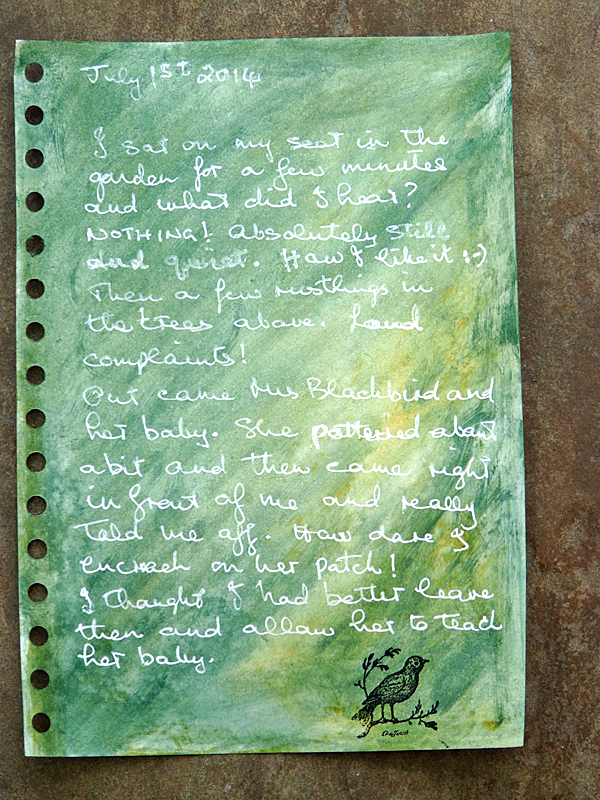 July 1st 2014
I sat on my seat in the
garden for a few minutes
and what did I hear?
NOTHING! Absolutely still
and quiet. How I like it :-)
Then a few rustlings in
the trees above. Loud
complaints!
Out came Mrs Blackbird and
her baby. She pottered about
a bit and then came right
in front of me and really
told me off. How dare I
encroach on her patch!
I thought I had better leave
then and allow her to teach
her baby.